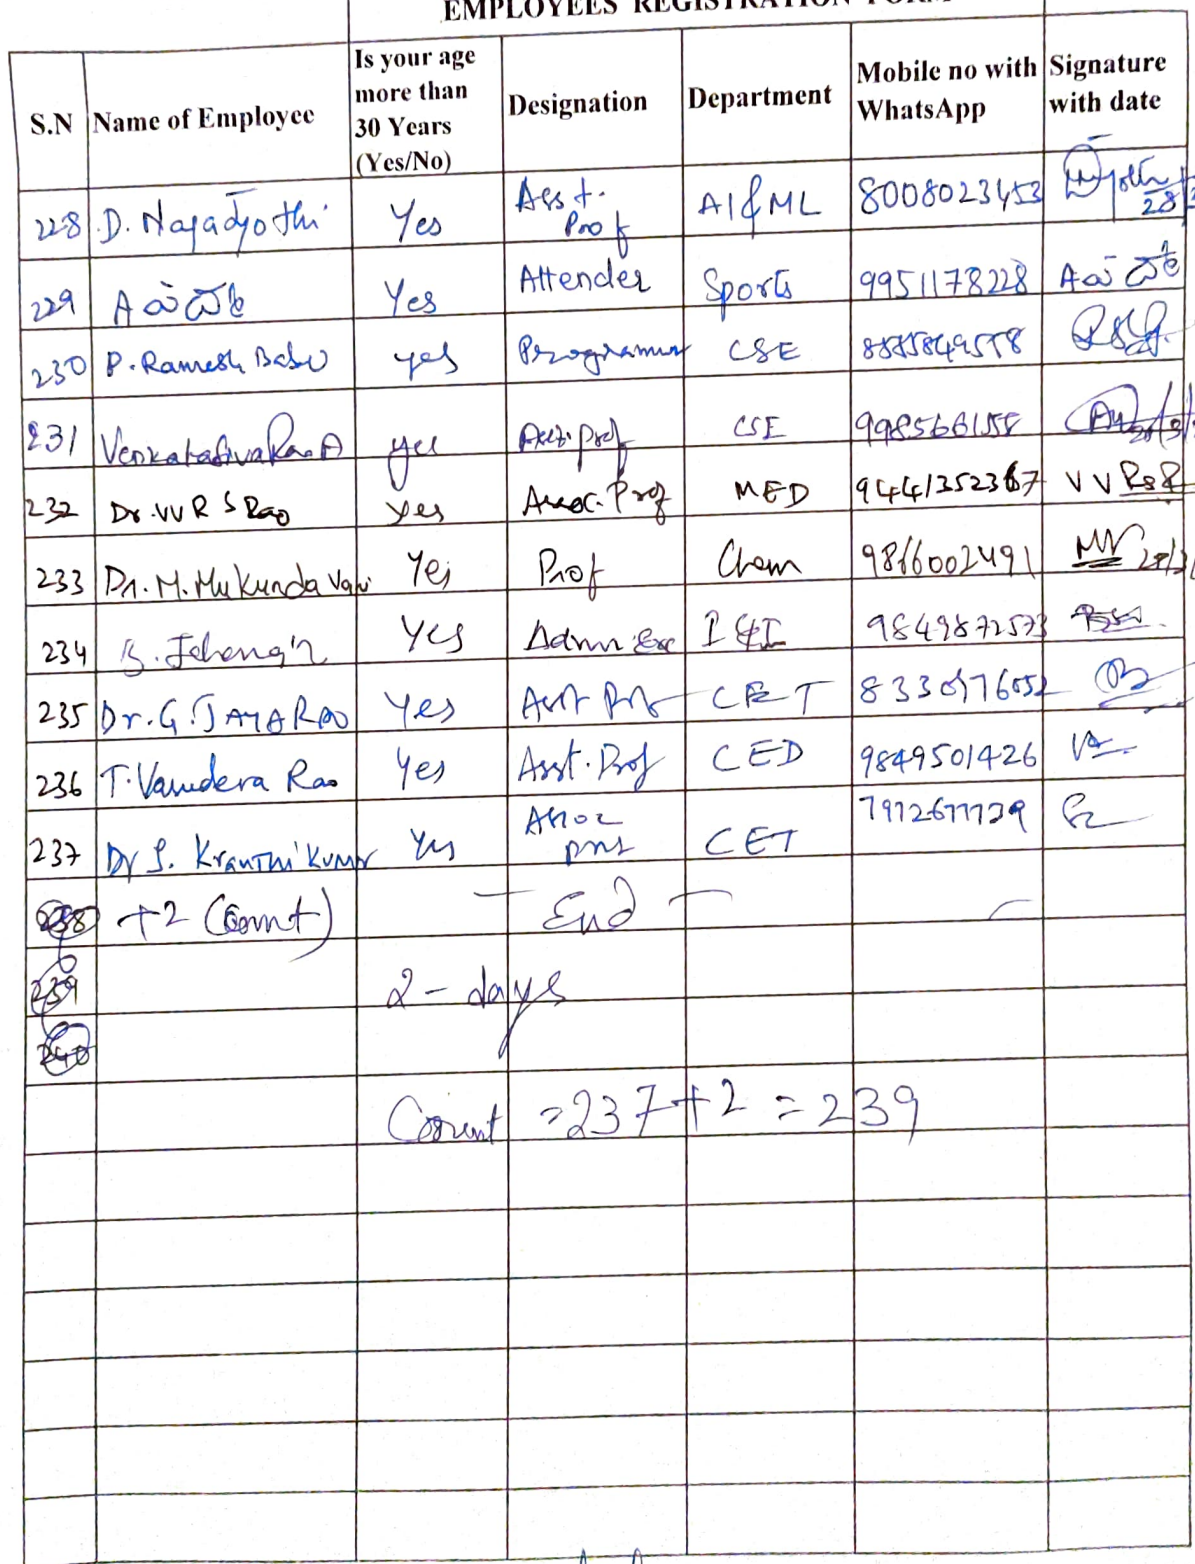 EMPLOYEES REGISTRATION FORM
S.N Name of Employee Is your age more than 30 Years (Yes/No) Designation Department Mobile no with WhatsApp Signature with date
228 D. Nagadyothi Yes Asst. Prof AI & ML 8008023453 28
229 Yes Attender Sports 9951178228
230 P. Ramesh Babu yes Programmer CSE
231 Venkatasivarao A yes Asst. Prof CSE
232 Dr. VVR S Rao yes Assoc. Prof MED 9441352367 VV RSR
233 Dr. M. Mukunda Vani Yes Prof Chem 9866002491
234 Yes Admn. Exe 9849872573
235 Dr. G. JAYA RAO Yes Asst Prof CET
236 T. Vasudeva Rao Yes Asst. Prof CED 9849501426
237 Dr S. Kranthi Kumar Yes Assoc Prof CET
238 +2 (Count) - End -
239 2 - days
240
Count = 237 + 2 = 239